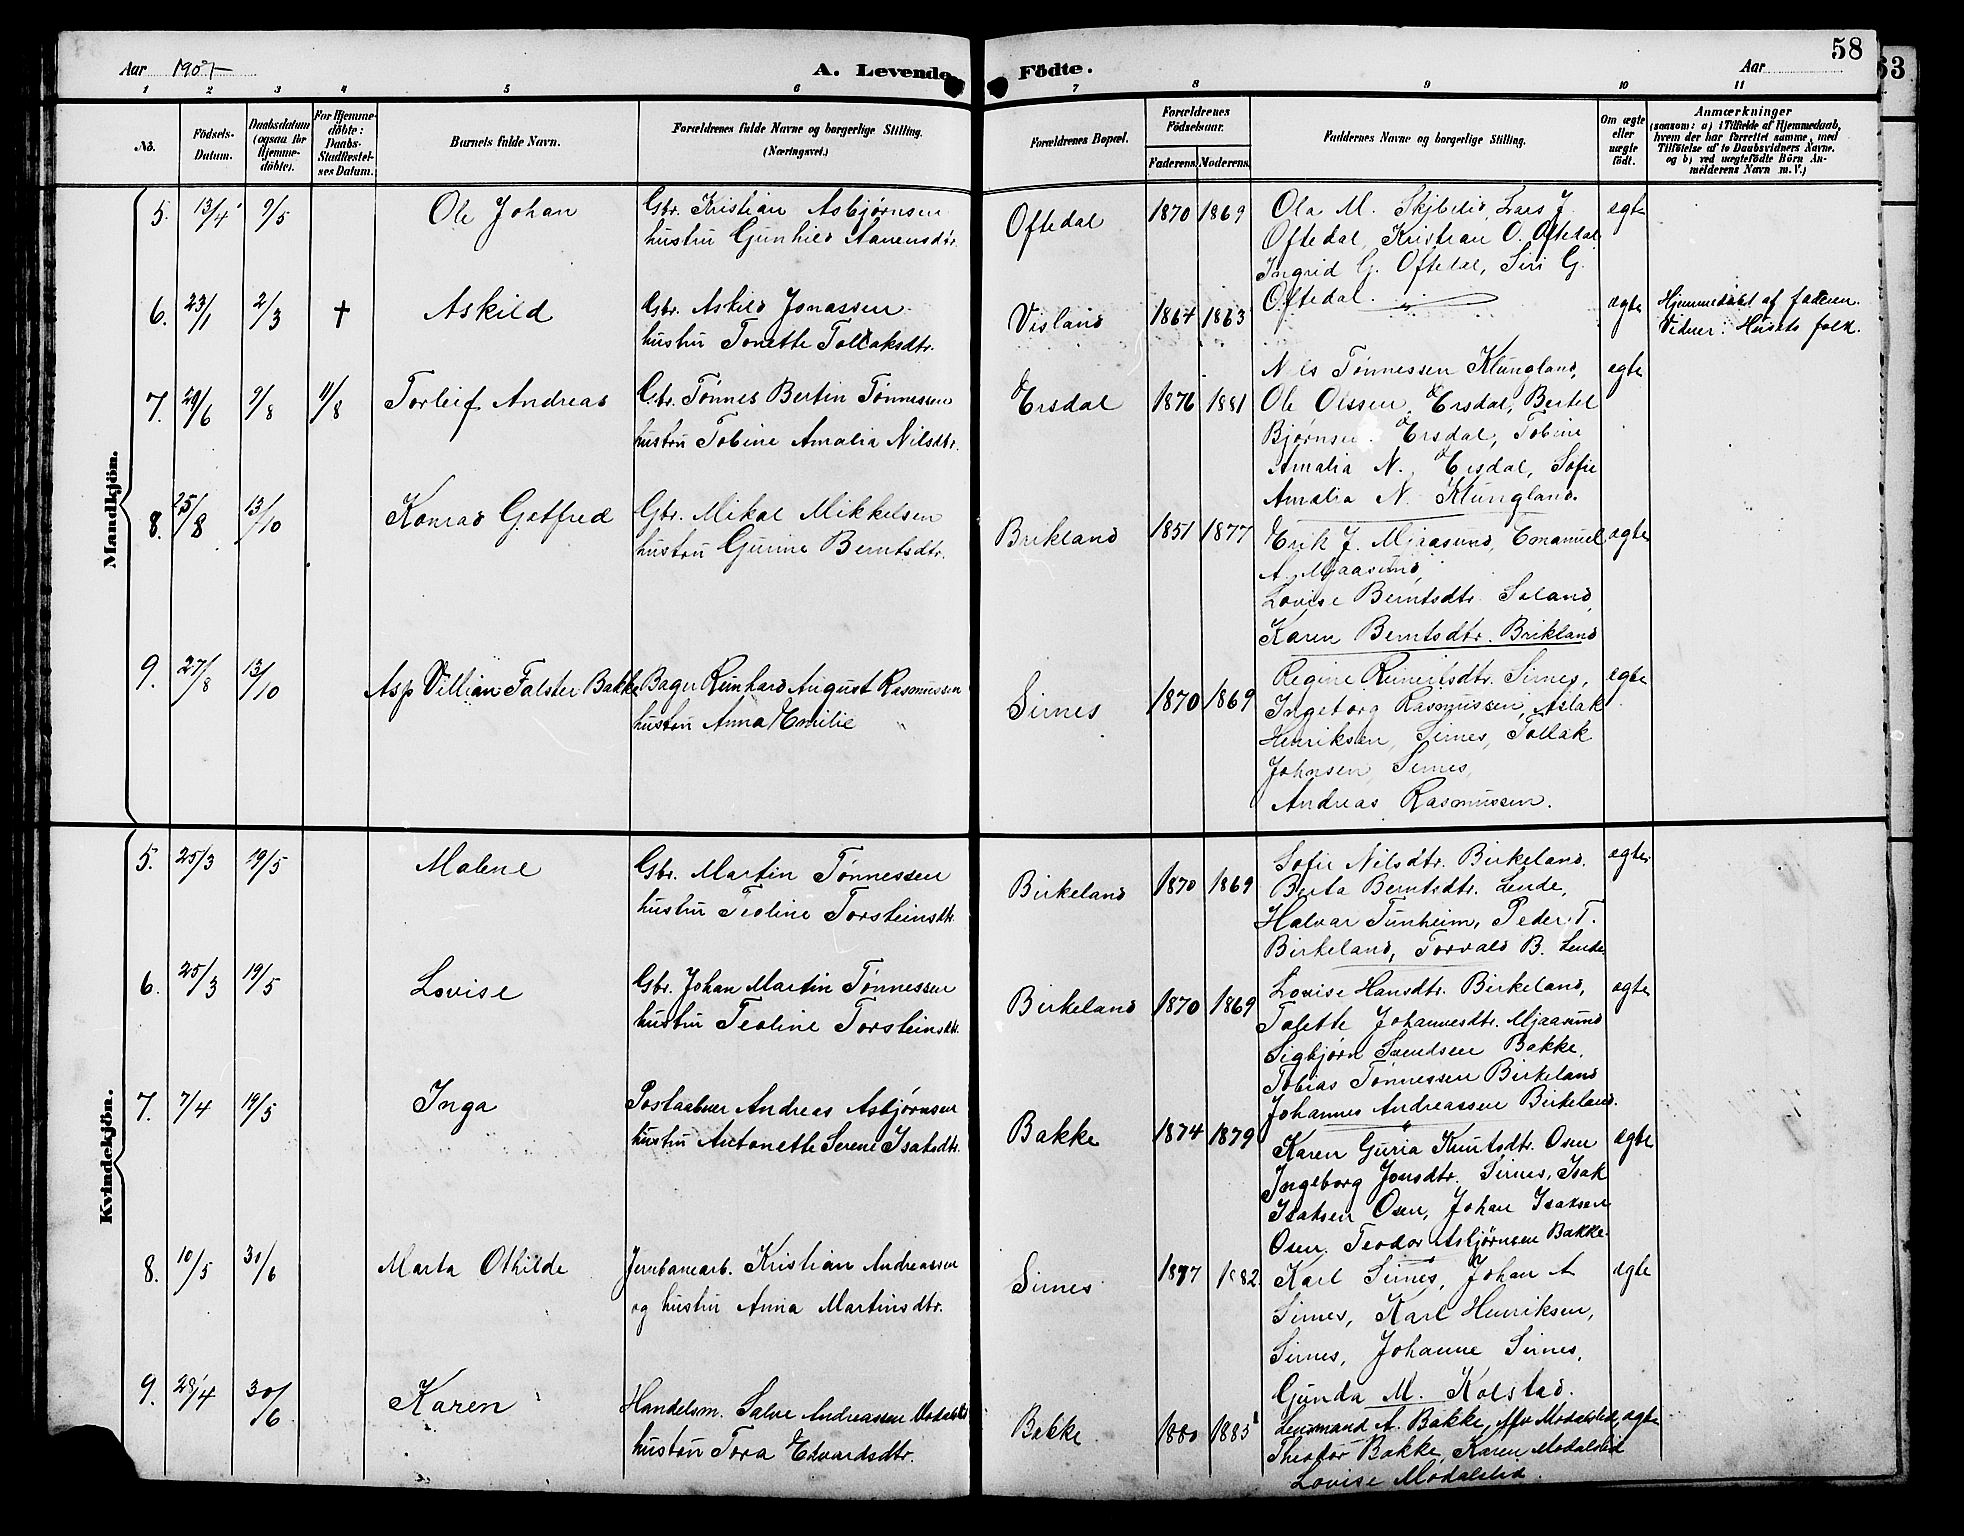 58
63
Aar 1907
A. Levende Födte.
Aar
1 2 3 4 5 6 7 8 9 10 11
No.
Födsels-Datum.
Daabsdatum (ogsaa for Hjemme-döbte).
For Hjemme-döbte: Daabs-Stadfæstel-ses Datum.
Barnets fulde Navn.
Forældrenes fulde Navne og borgerlige Stilling. (Næringsvei.)
Forældrenes Bopæl.
Forældrenes Födselsaar.
Faderens. Moderens.
Faddernes Navne og borgerlige Stilling.
Om ægte eller uægte födt.
Anmærkninger
(saasom: a) i Tilfælde af Hjemmedaab,
hvem der har forrettet samme, med
Tilföielse af to Daabsvidners Navne.
og b) ved uægtefödte Börn An-
melderens Navn m. V.)
Mandkjön.
5. 13/4 9/5 Ole Johan
Gbr. Kristian Asbjørnsen
hustru Gunhild Aanensdtr.
Oftedal 1870 1869
Ola M. Skjbelid, Lars J.
Oftedal, Kristian O. Oftedal
Ingrid G. Oftedal, Siri G.
Oftedal.
ægte
6. 23/1 2/3 † Askild
Gbr. Askild Jonassen
hustru Tonette Tollaksdtr.
Visland 1864 1863
ægte
Hjemmedøbt af faderen.
Vidner: Husets folk.
7. 29/6 9/8 11/8 Torleif Andreas
Gbr. Tønnes Bertin Tønnessen
hustru Tobine Amalia Nilsdtr.
Ersdal 1876 1881
Nils Tønnessen Klungland,
Ole Olssen Ersdal, Bertel
Bjørnsen Ersdal, Tobine
Amalia N. Ersdal, Sofie
Amalia N. Klungland.
ægte
8. 25/8 13/10 Konrad Gotfred
Gbr. Mikal Mikkelsen
hustru Gurine Berntsdtr.
Brikland 1851 1877
Erik J. Mjaasund, Emanuel
A. Mjaasund,
Lovise Berntsdtr. Soland,
Karen Berntsdtr. Brikland
ægte
9. 27/8 13/10 Asp Villian Falster Bakke
Bager Reinhard August Rasmussen
hustru Anna Emilie "
Sirnes 1870 1869
Regine Reinertsdtr. Sirnes,
Ingeborg Rasmussen, Aslak
Henriksen, Sirnes, Tollak
Johnsen, Sirnes,
Andreas Rasmussen.
ægte
Kvindekjön.
5. 25/3 19/5 Malene
Gbr. Martin Tønnessen
hustru Teoline Torsteinsdtr.
Birkeland 1870 1869
Sofie Nilsdtr. Birkeland.
Berta Berntsdtr. Lende,
Halvar Tunheim, Peder T.
Birkeland, Torvald B. Lende
ægte
6. 25/3 19/5 Lovise
Gbr. Johan Martin Tønnessen
hustru Teoline Torsteinsdtr.
Birkeland 1870 1869
Lovise Hansdtr. Birkeland,
Talette Johannesdtr. Mjaasund
Sigbjørn Svendsen Bakke,
Tobias Tønnessen Birkeland
Johannes Andreassen Birkeland.
ægte
7. 7/4 19/5 Inga
Postaabner Andreas Asbjørnsen
hustru Antonette Serene Isaksdtr.
Bakke 1874 1879
Karen Guria Knutsdtr. Osen
Ingeborg Jonsdtr. Sirnes, Isak
Isaksen Osen, Johan Isaksen
Osen, Teodor Asbjørnsen Bakke.
ægte
8. 10/5 30/6 Marta Othilde
Jernbanearb. Kristian Andreassen
og hustru Anna Martinsdtr.
Sirnes 1877 1882
Karl Sirnes, Johan A
Sirnes, Karl Henriksen,
Sirnes, Johanne Sirnes,
Gunda M. Kolstad.
ægte
9. 28/4 30/6 Karen
Handelsm. Salve Andreassen Modalsli
hustru Tora Edvardsdtr.
Bakke 1880 1883
Lensmand A. Bakke, Modalslid,
Theodor Bakke, Karen Modalslid
Lovise Modalslid.
ægte